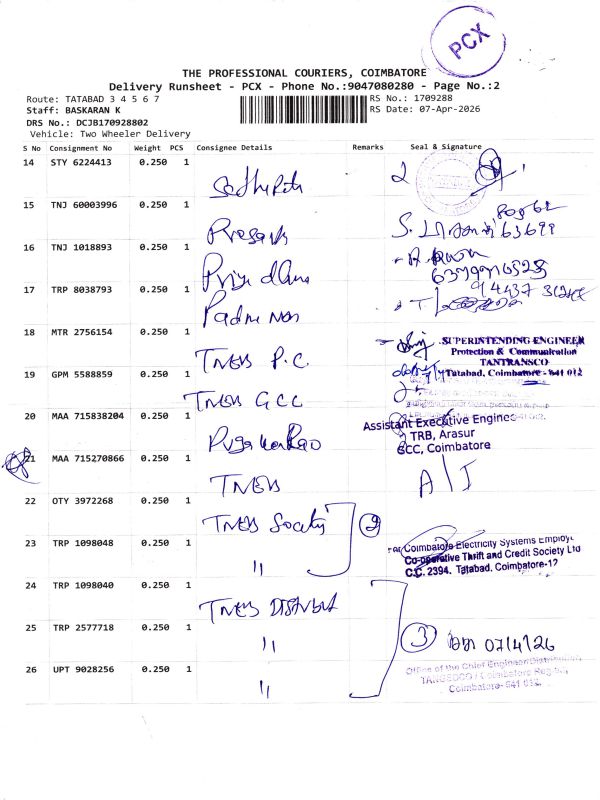 PCX
THE PROFESSIONAL COURIERS, COIMBATORE
Delivery Runsheet - PCX - Phone No.:9047080280 - Page No.:2
Route: TATABAD 3 4 5 6 7
RS No.: 1709288
Staff: BASKARAN K
RS Date: 07-Apr-2026
DRS No.: DCJB170928802
Vehicle: Two Wheeler Delivery
S No Consignment No Weight PCS Consignee Details Remarks Seal & Signature
14 STY 6224413 0.250 1
2
15 TNJ 60003996 0.250 1
Prasanth
16 TNJ 1018893 0.250 1
Priya
17 TRP 8038793 0.250 1
Padma
18 MTR 2756154 0.250 1
TNEB P.C.
SUPERINTENDING ENGINEER
Protection & Communication
TANTRANSCO
Tatabad, Coimbatore - 641 012
19 GPM 5588859 0.250 1
TNEB GCC
20 MAA 715838204 0.250 1
Assistant Executive Engineer
TRB, Arasur
GCC, Coimbatore
21 MAA 715270866 0.250 1
TNEB
A/I
22 OTY 3972268 0.250 1
TNEB Society
2
23 TRP 1098048 0.250 1
"
For Coimbatore Electricity Systems Employ
Co-operative Thrift and Credit Society Ltd
C.C. 2394, Tatabad, Coimbatore-12
24 TRP 1098040 0.250 1
TNEB
25 TRP 2577718 0.250 1
"
3
07/4/26
26 UPT 9028256 0.250 1
"
Office of the Chief Engineer Distribution
TANGEDCO / Coimbatore Region
Coimbatore- 641 012.